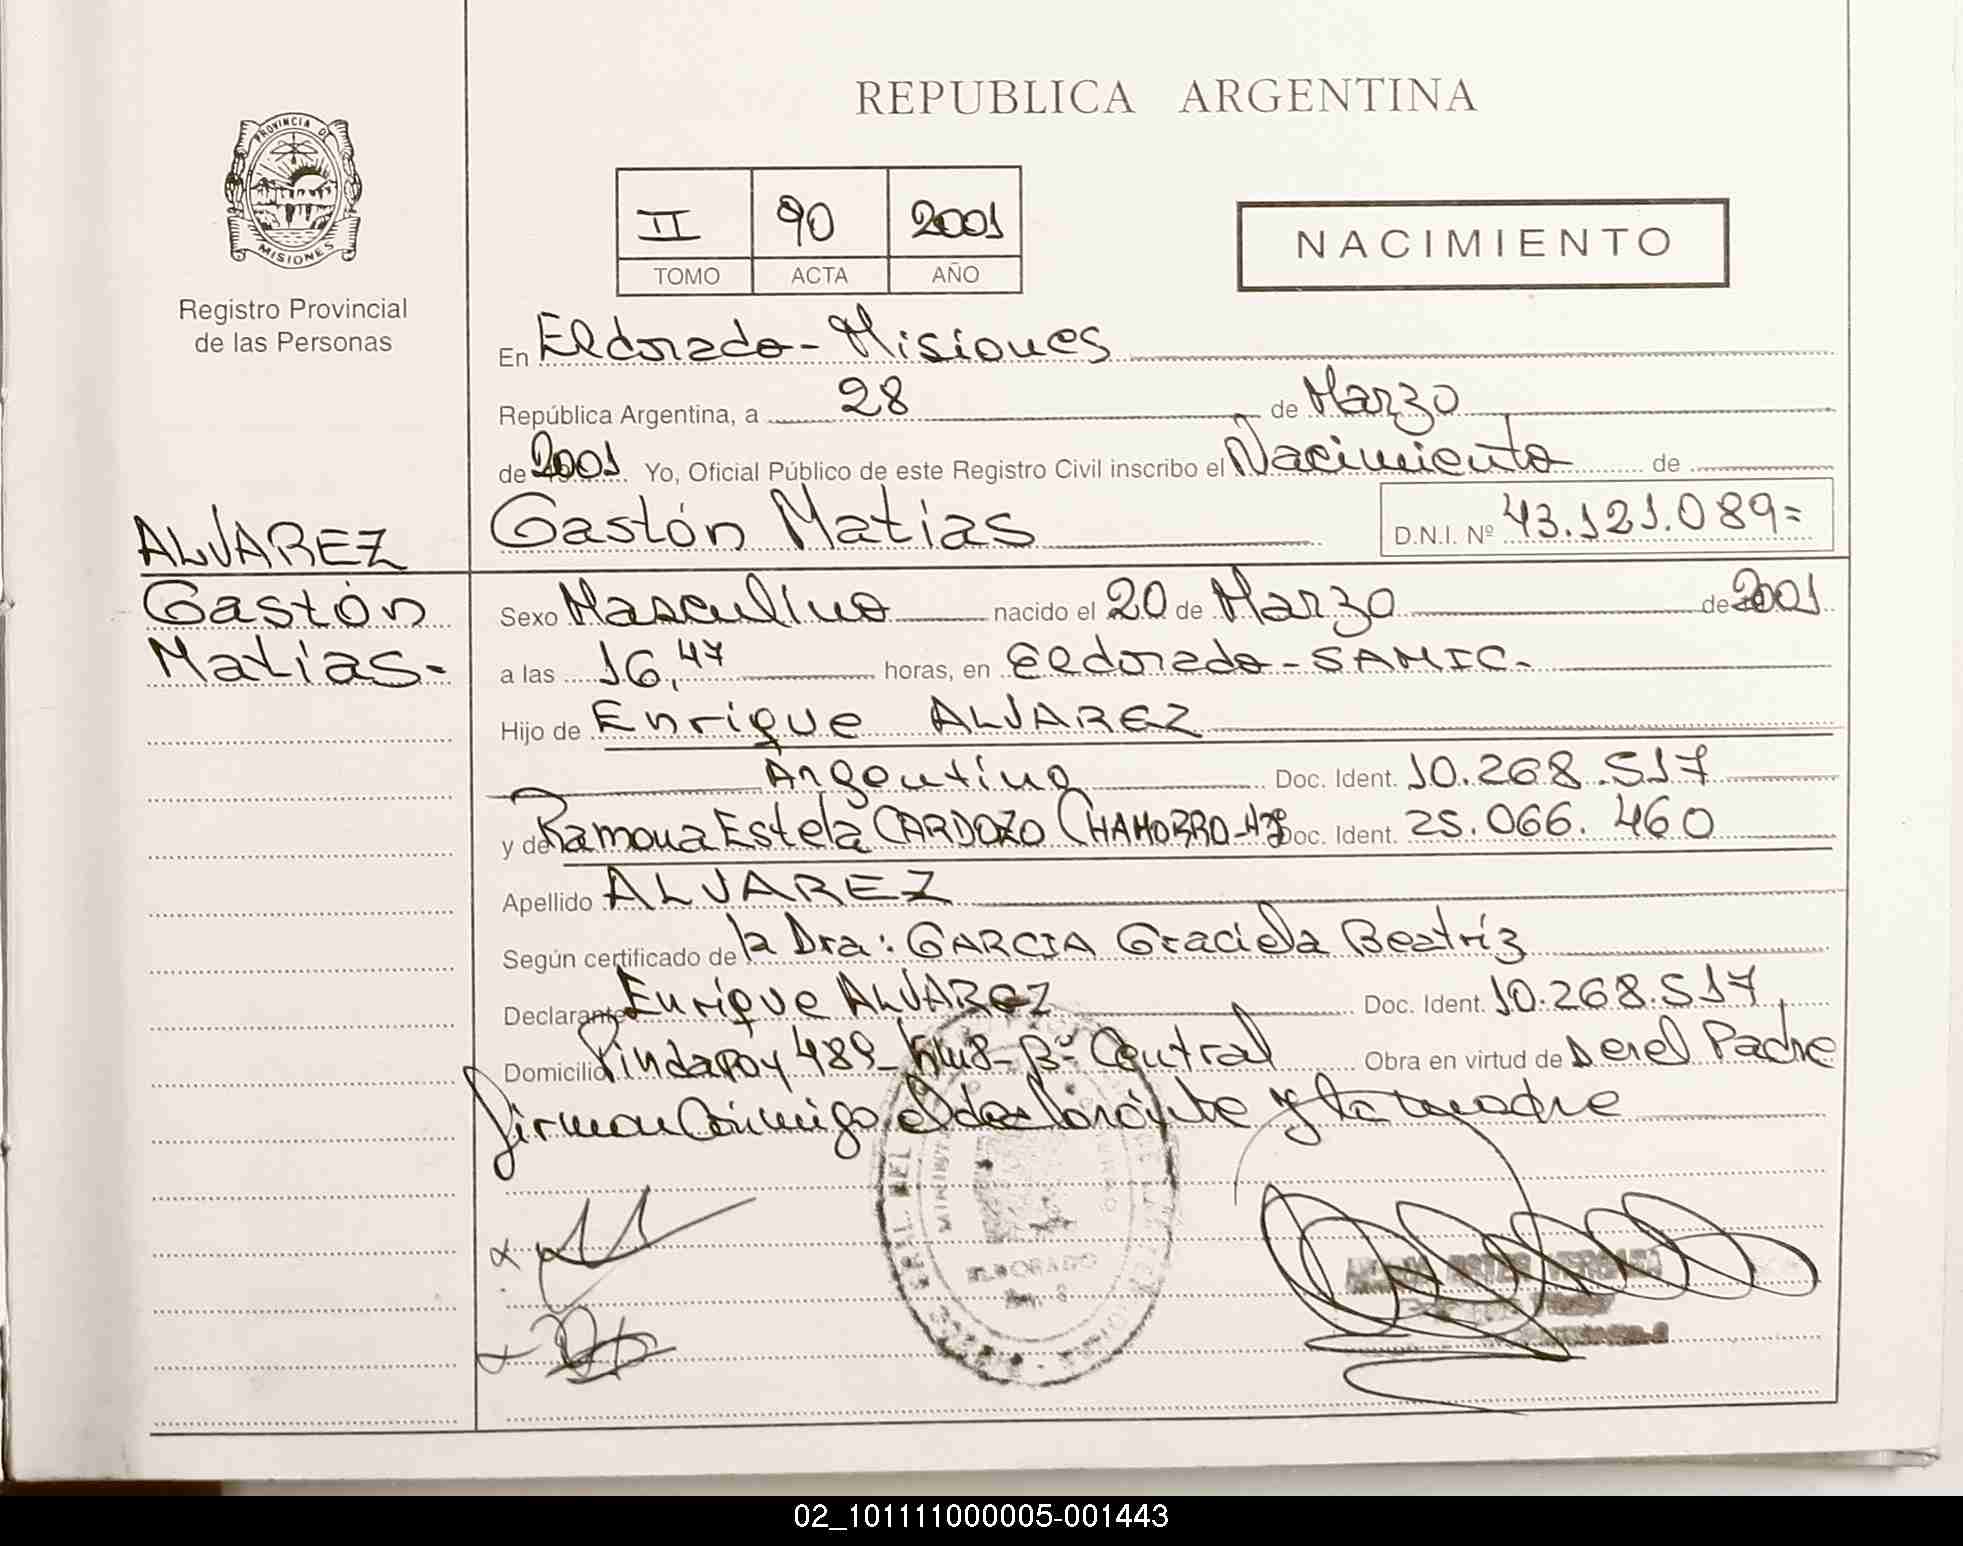 REPUBLICA ARGENTINA
PROVINCIA DE
MISIONES
Registro Provincial
de las Personas
II 90 2001
TOMO ACTA AÑO
NACIMIENTO
En Eldorado - Misiones
República Argentina, a 28 de Marzo
de 2001 Yo, Oficial Público de este Registro Civil inscribo el Nacimiento de
Gastón Matias D.N.I. Nº 43.121.089=
ALVAREZ
Gastón
Matias-
Sexo Masculino nacido el 20 de Marzo de 2001
a las 16,47 horas, en Eldorado - SAMIC.
Hijo de Enrique ALVAREZ
Argentino Doc. Ident. 10.268.517
y de Ramona Estela CARDOZO CHAMORRO Doc. Ident. 25.066.460
Apellido ALVAREZ
Según certificado de la Dra: GARCIA Graciela Beatríz
Declarante Enrique ALVAREZ Doc. Ident. 10.268.517
Domicilio Pindapoy 489 - Km8 - Bº Central Obra en virtud de Ser el Padre
firman Conmigo el declarante y la madre
ELDORADO
02_101111000005-001443